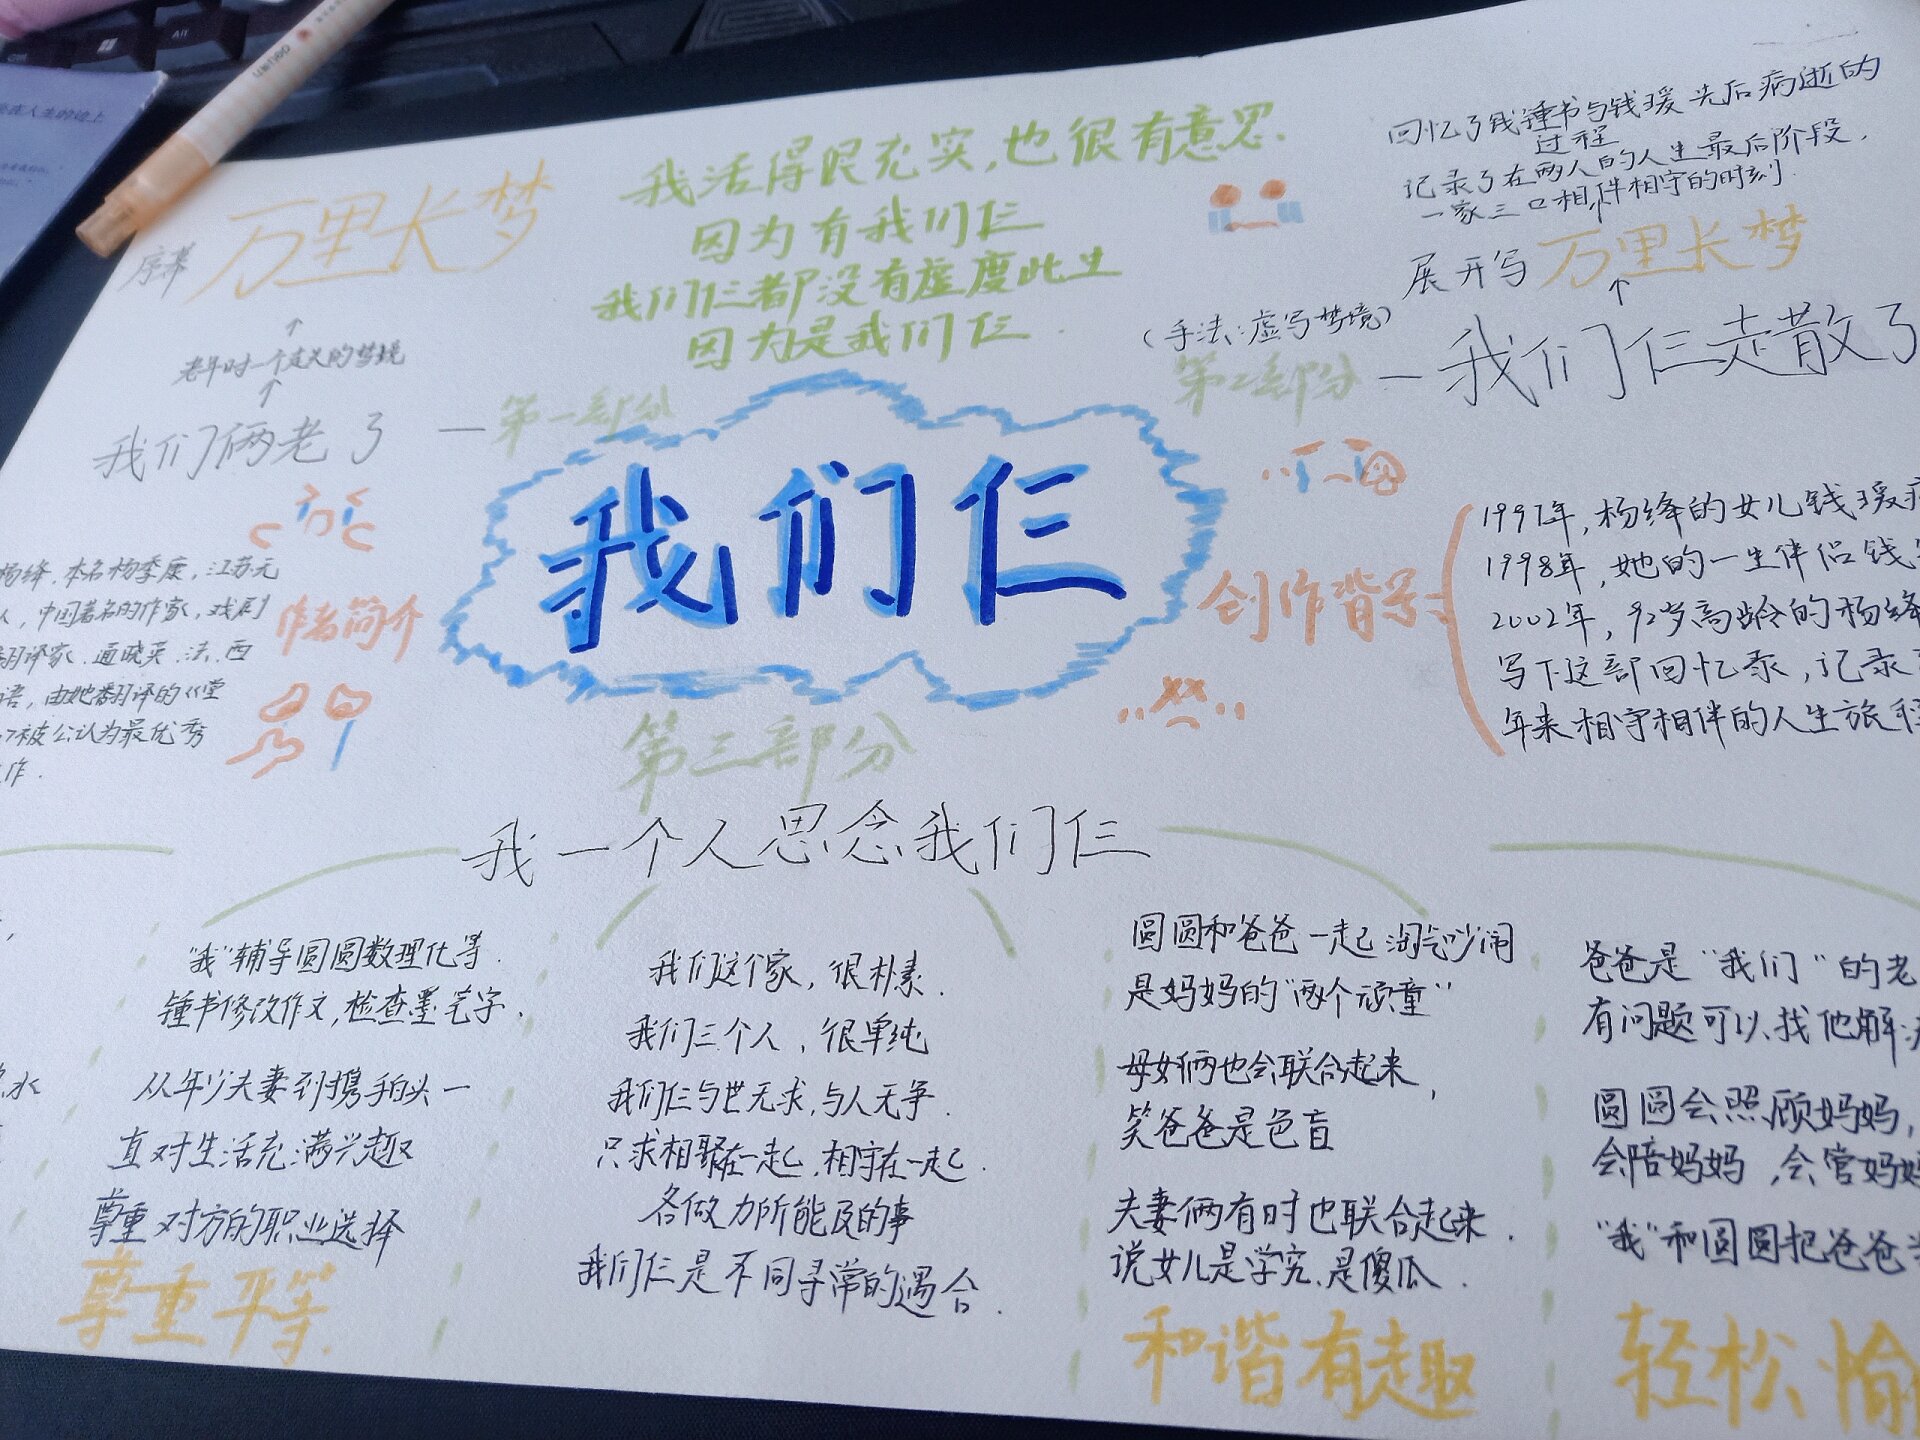 我活得很充实,也很有意思.
因为有我们仨
我们仨都没有虚度此生
因为是我们仨.
序幕 万里长梦
↑
老年时一个 的梦境
↑
我们俩老了 — 第一部分
回忆了钱锺书与钱瑗先后病逝的
过程
记录了在两人的人生最后阶段,
一家三口相伴相守的时刻.
展开写 万里长梦
↑
(手法:虚写梦境)
第二部分 — 我们仨走散了
我们仨
杨绛,本名杨季康,江苏无
人,中国著名的作家,戏剧
翻译家.通晓英.法.西
语,由她翻译的《堂
》被公认为最优秀
作.
作者简介
创作背景:
1997年,杨绛的女儿钱瑗病
1998年,她的一生伴侣钱
2002年,92岁高龄的杨绛
写下这部回忆录,记录
年来相守相伴的人生旅程
第三部分
我一个人思念我们仨
水
"我"辅导圆圆数理化等.
锺书修改作文,检查墨笔字.
从年少夫妻到携手白头一
直对生活充满兴趣
尊重对方的职业选择
尊重平等.
我们这个家,很朴素.
我们三个人,很单纯
我们仨与世无求,与人无争.
只求相聚在一起,相守在一起.
各做力所能及的事
我们仨是不同寻常的遇合.
圆圆和爸爸一起淘气吵闹
是妈妈的"两个顽童"
母女俩也会联合起来,
笑爸爸是色盲
夫妻俩有时也联合起来.
说女儿是学究.是傻瓜.
和谐有趣
爸爸是"我们"的老
有问题可以找他解决
圆圆会照顾妈妈,
会陪妈妈,会管妈妈
"我"和圆圆把爸爸当
轻松愉